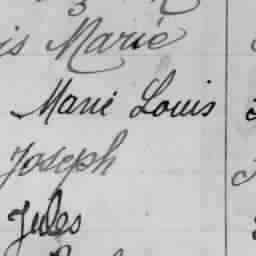 is Marie
Marie Louis
Joseph
Jules